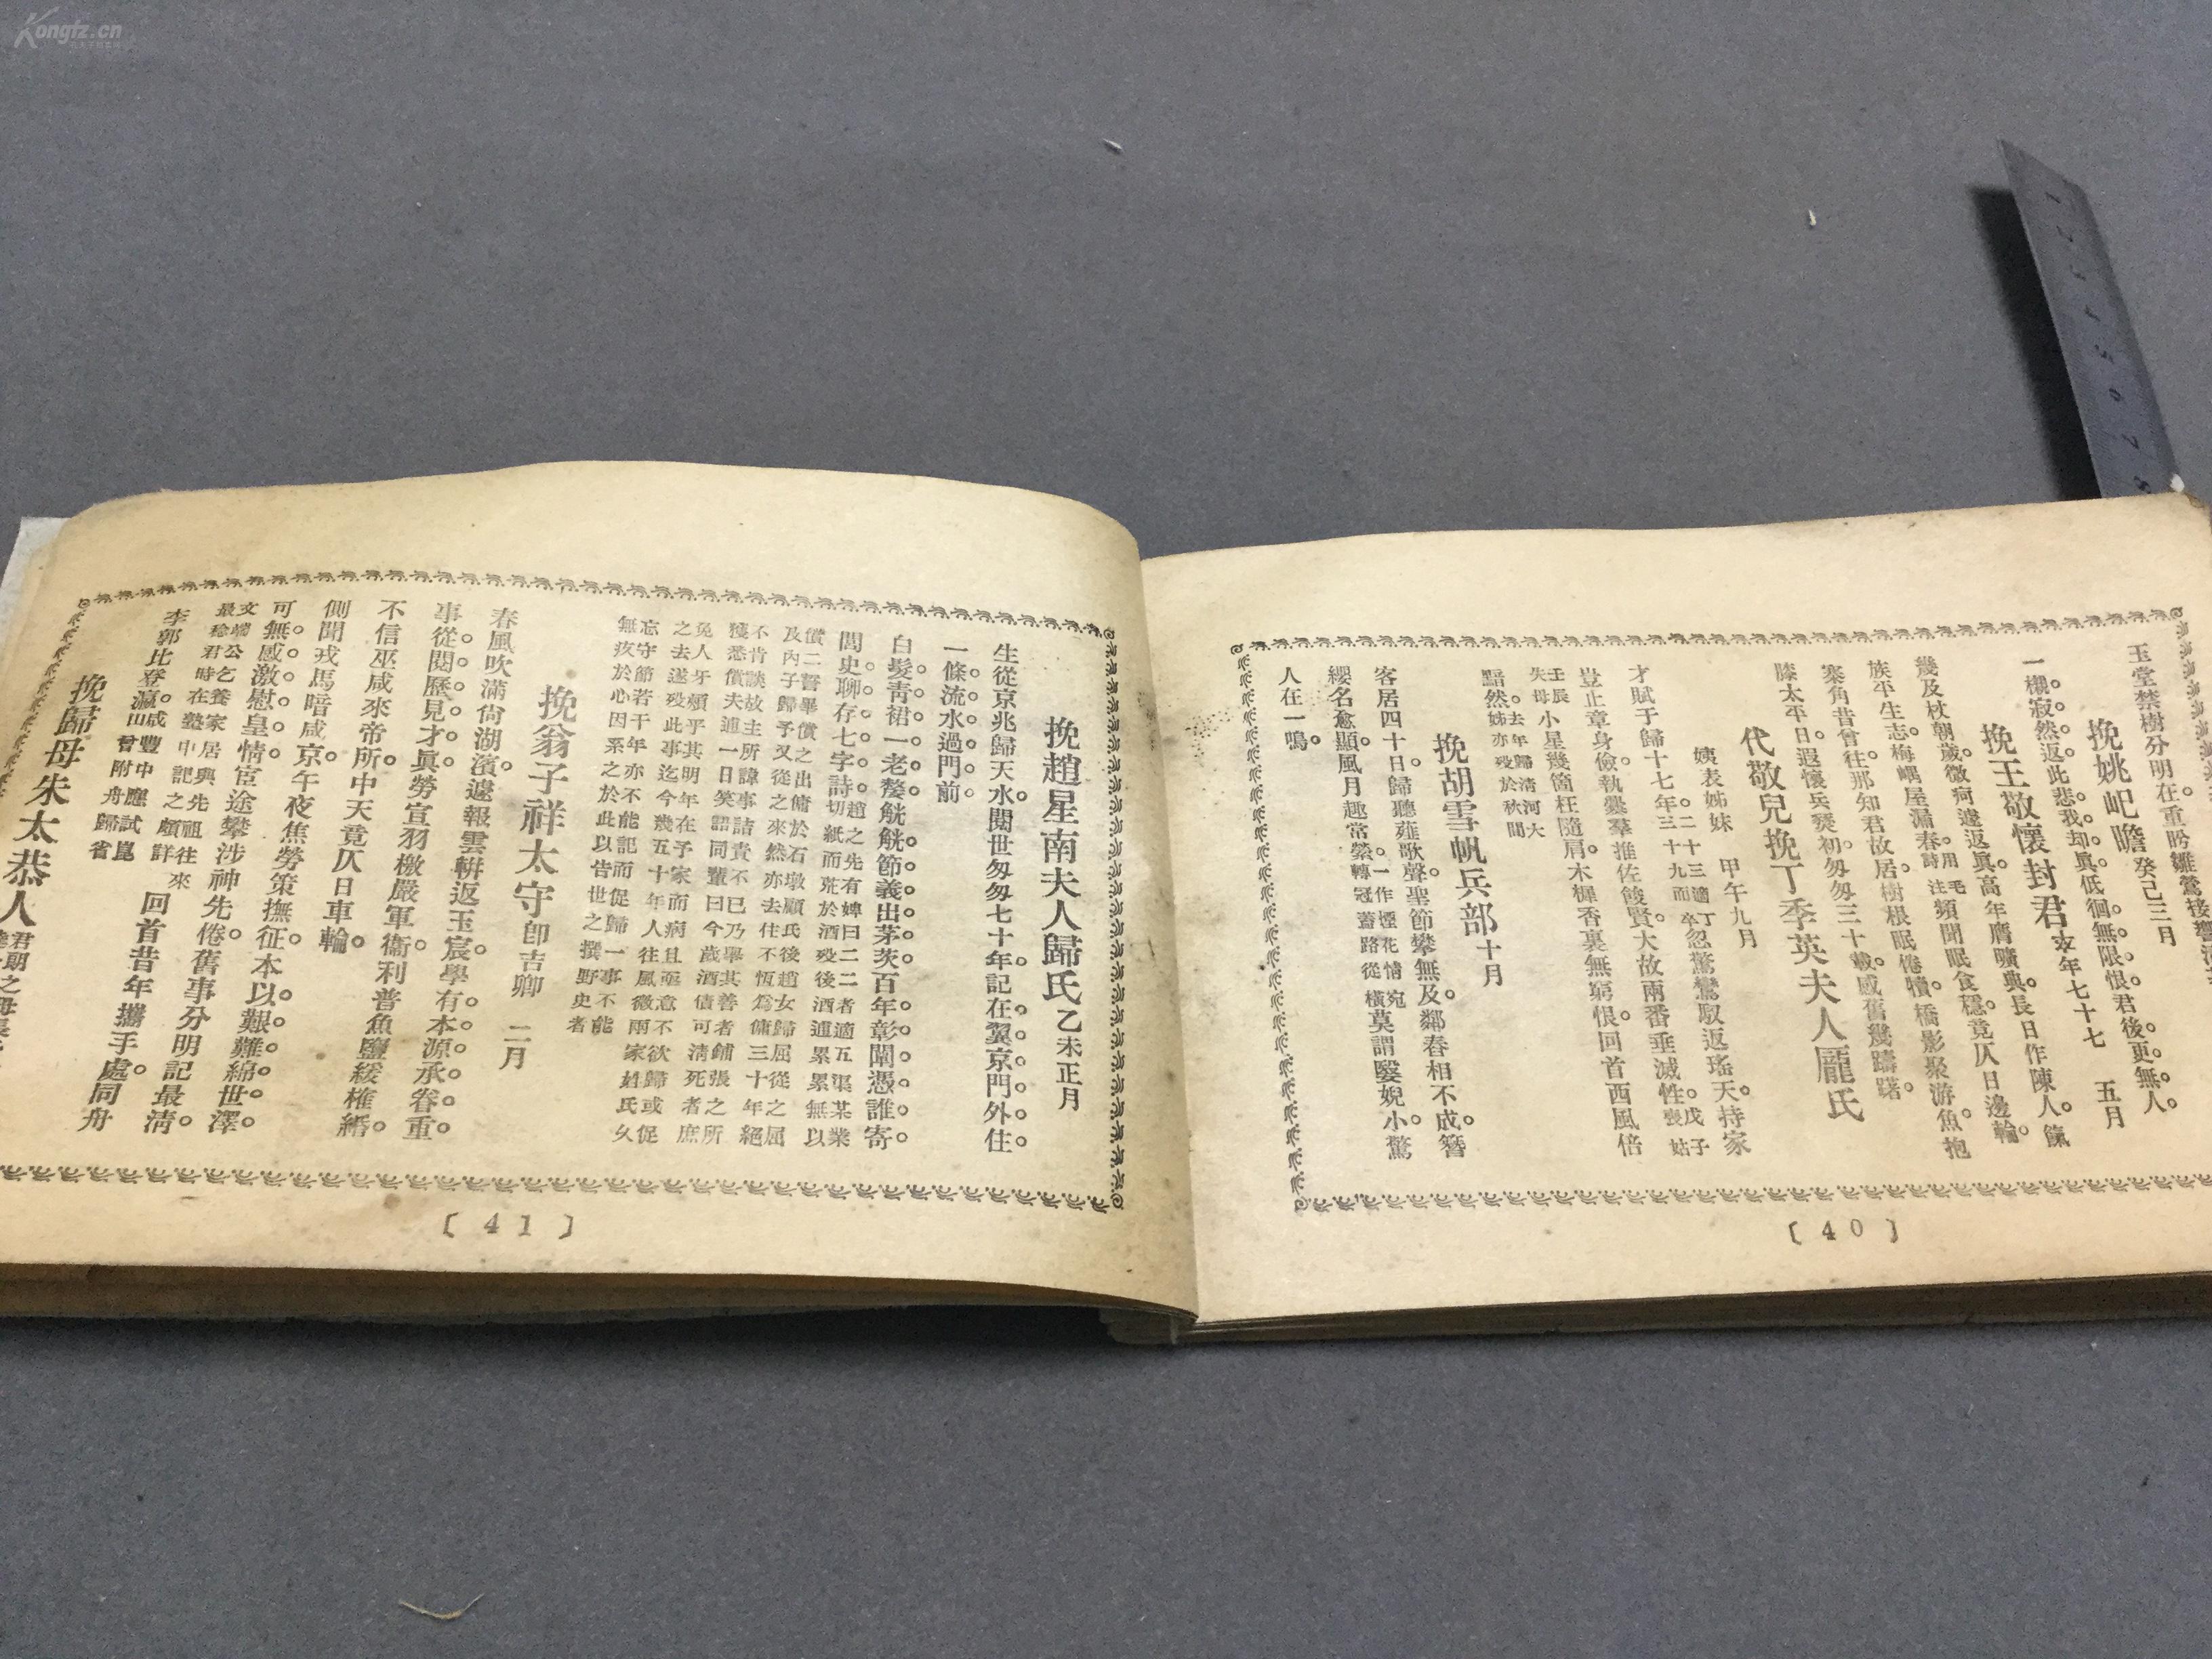 玉堂禁樹分明在重盼雛鶯接響
挽姚屺瞻 癸巳三月
一櫬寂然返此悲我却眞低徊無限恨君後更無人
挽王敬懷封君 卒年七十七 五月
幾及杖朝歲微疴遽返眞高年膺曠典長日作陳人籲
族平生志梅嶼屋漏春詩用毛注頻聞眠食穩竟仄日邊輪
寨角昔曾往那知君故居樹根眠倦犢橋影聚游魚抱
膝太平日遐懷兵燹初匆匆三十載感舊幾躊躇
代敬兒挽丁季英夫人龐氏
姨表姊妹 甲午九月
才賦于歸十七年二十三適丁三十九而卒忽驚鸞馭返瑤天持家
豈止章身儉執爨羣推佐餕賢大故兩番垂滅性戊子喪姑
壬辰失母小星幾箇枉隨肩木樨香裏無窮恨回首西風倍
黯然去年歸淸河大姊亦歿於秋間
挽胡雪帆兵部 十月
客居四十日歸聽薤歌聲聖節攀無及鄰春相不成簪
纓名愈顯風月趣常縈一作煙花情宛轉冠蓋路從橫莫謂鷖婗小驚
人在一鳴
〔40〕
挽趙星南夫人歸氏 乙未正月
生從京兆歸天水閱世匆匆七十年記在翼京門外住
一條流水過門前
白髮靑裙一老嫠觥觥節義出茅茨百年彰闡憑誰寄
閭史聊存七字詩趙之先有婢曰二二者適五渠某業切紙而荒於酒歿後酒逋累累無以
償二誓畢償之出傭於石墩顧氏後趙女歸屈從之屈
及內子歸予又從之來然亦去住不恆爲傭三十年絕
不肯談故主所諱事詰責不已乃舉其善者鋪張之所
獲悉償夫逋一日笑語同輩曰今歲酒債可淸死者庶
免人牙頰乎其明年在予家而病且亟意不欲歸或促
之去遂歿此事迄今幾五十年人往風微兩家姓氏久
忘守節若干年亦不能記而促歸一事不能
無疚於心因系之於此以吿世之撰野史者
挽翁子祥太守 卽吉卿 二月
春風吹滿尙湖濱遽報雲軿返玉宸學有本源承眷重
事從閱歷見才眞勞宣羽檄嚴軍衞利普魚鹽緩榷緡
不信巫咸來帝所中天竟仄日車輪
側聞戎馬暗咸京午夜焦勞策撫征本以艱難綿世澤
可無感激慰皇情宦途攀涉神先倦舊事分明記最淸
文端公乞養家居與先祖往來最稔君時在塾中記之頗詳回首昔年攜手處同舟
李郭比登瀛咸豐中應試崑山曾附舟歸省
挽歸母朱太恭人
〔41〕